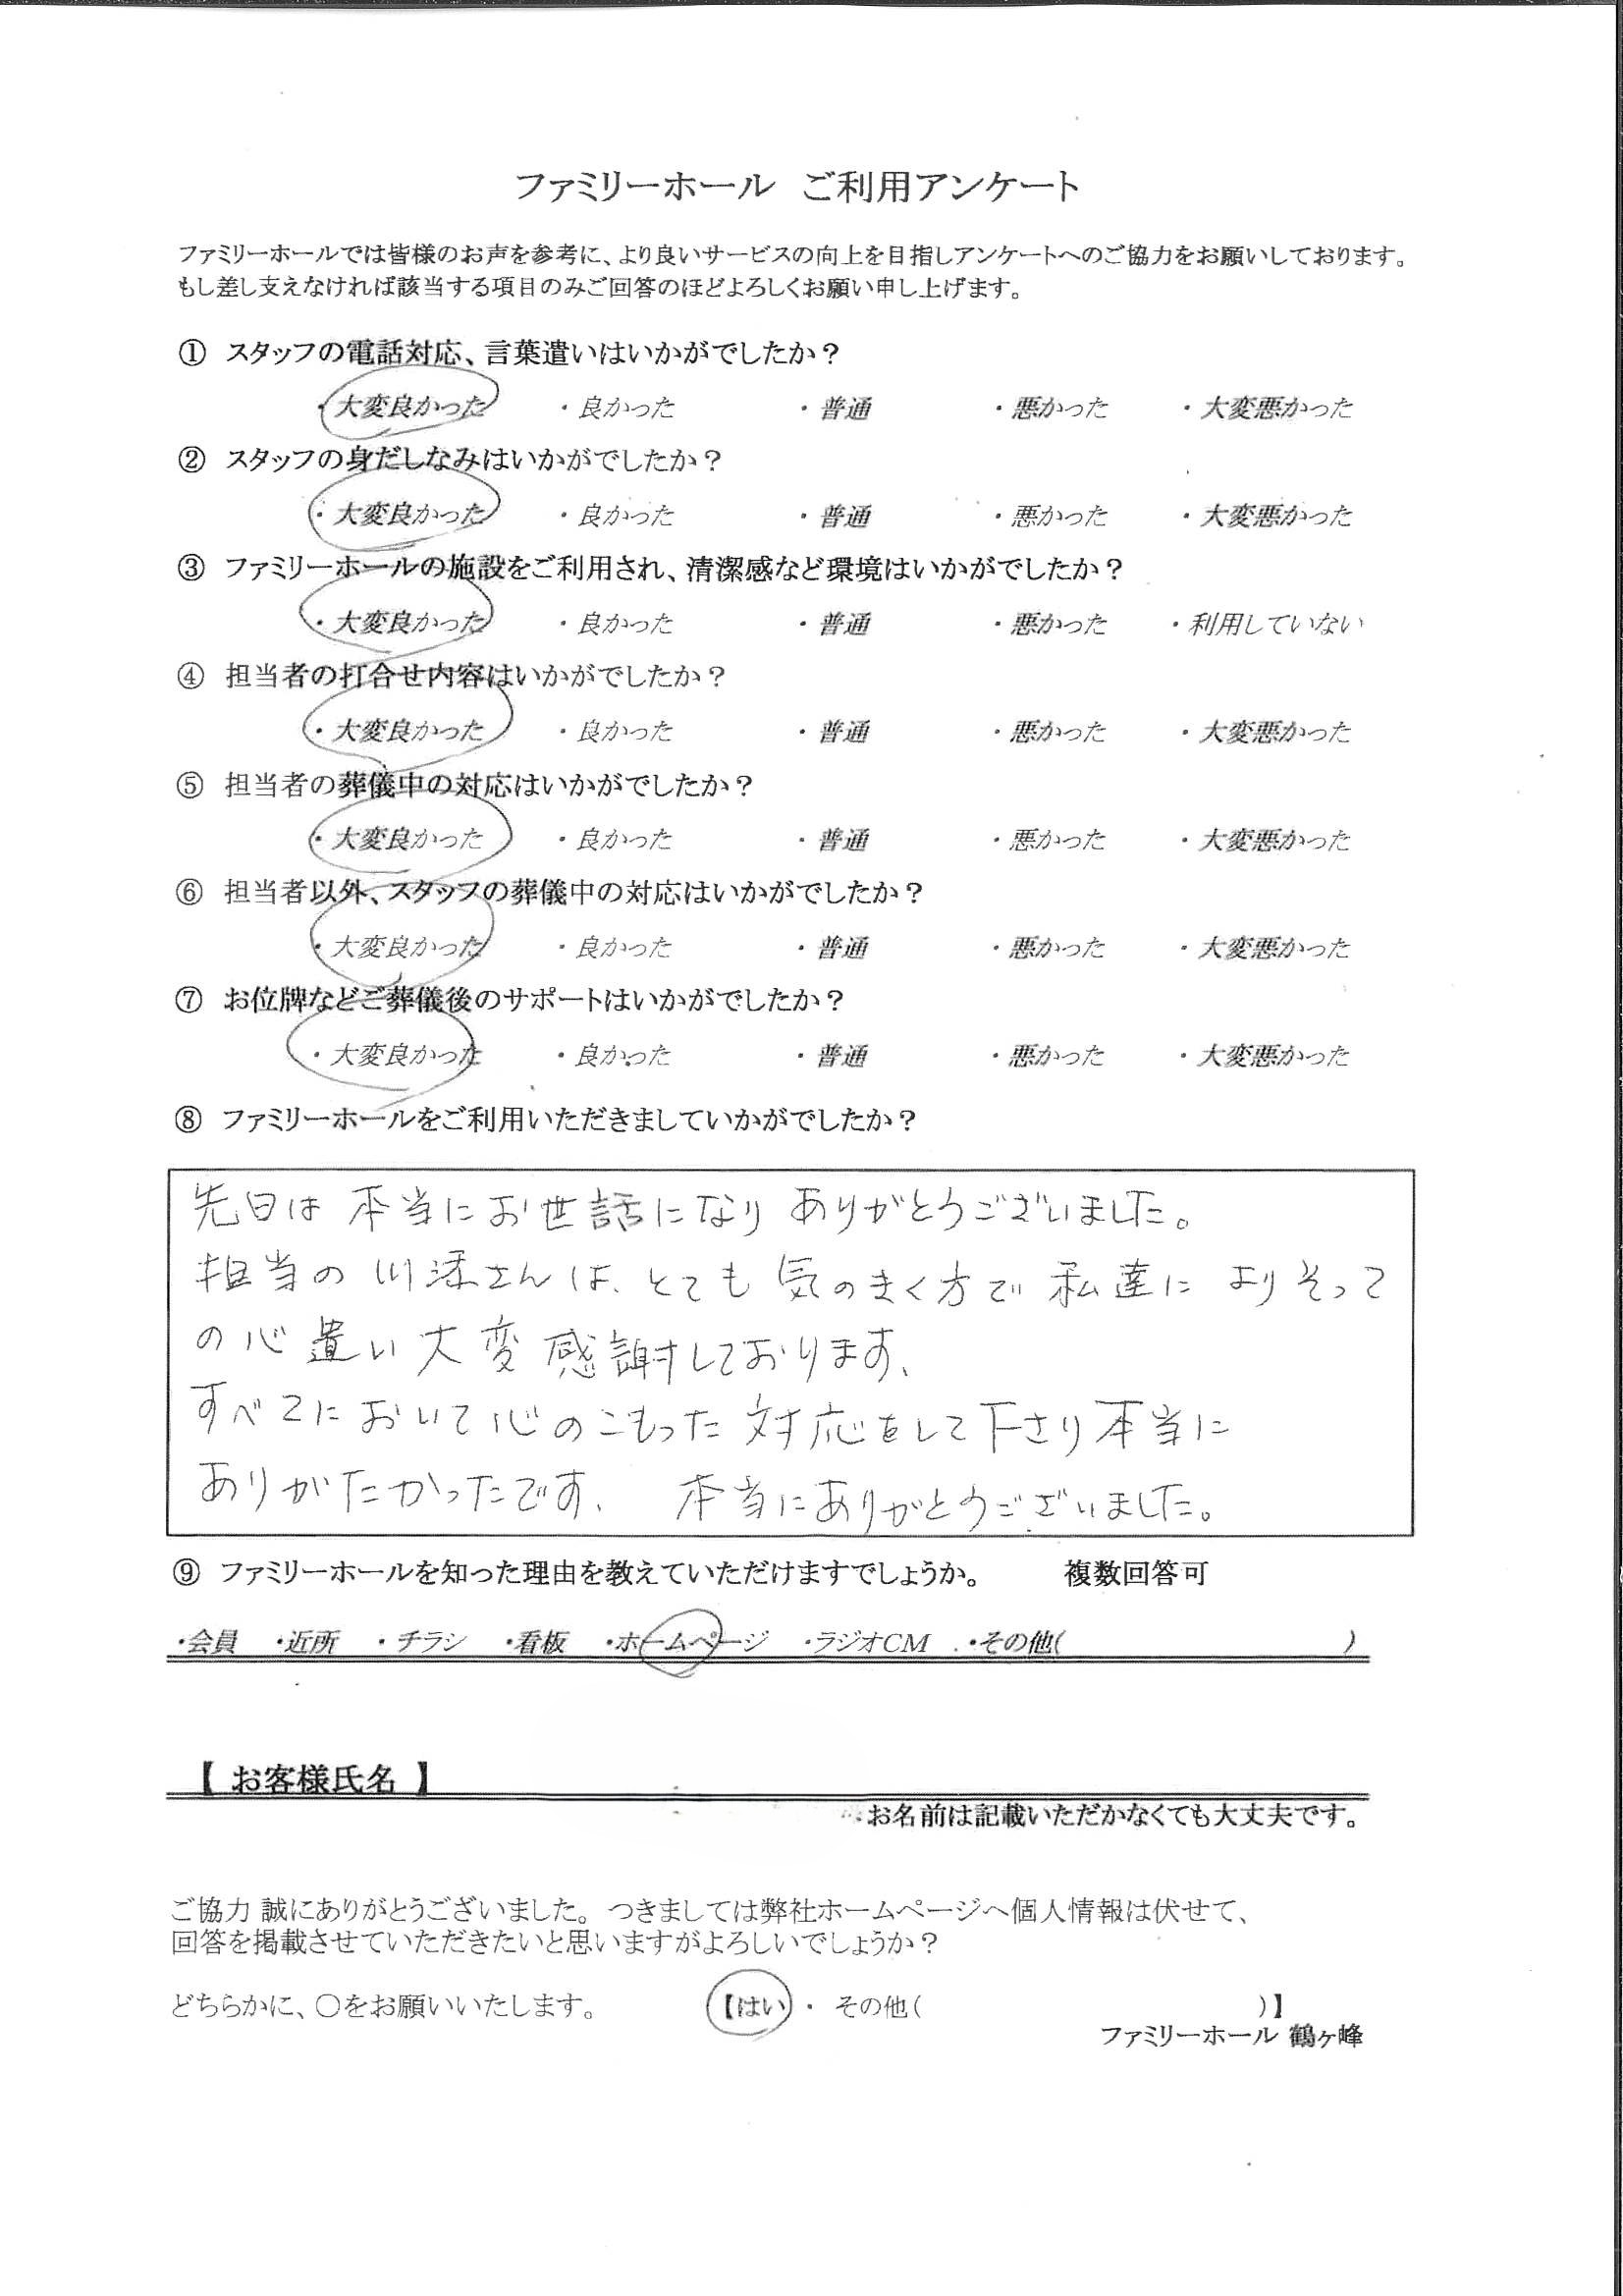 ファミリーホール ご利用アンケート
ファミリーホールでは皆様のお声を参考に、より良いサービスの向上を目指しアンケートへのご協力をお願いしております。
もし差し支えなければ該当する項目のみご回答のほどよろしくお願い申し上げます。
① スタッフの電話対応、言葉遣いはいかがでしたか？
・大変良かった ・良かった ・普通 ・悪かった ・大変悪かった
② スタッフの身だしなみはいかがでしたか？
・大変良かった ・良かった ・普通 ・悪かった ・大変悪かった
③ ファミリーホールの施設をご利用され、清潔感など環境はいかがでしたか？
・大変良かった ・良かった ・普通 ・悪かった ・利用していない
④ 担当者の打合せ内容はいかがでしたか？
・大変良かった ・良かった ・普通 ・悪かった ・大変悪かった
⑤ 担当者の葬儀中の対応はいかがでしたか？
・大変良かった ・良かった ・普通 ・悪かった ・大変悪かった
⑥ 担当者以外、スタッフの葬儀中の対応はいかがでしたか？
・大変良かった ・良かった ・普通 ・悪かった ・大変悪かった
⑦ お位牌などご葬儀後のサポートはいかがでしたか？
・大変良かった ・良かった ・普通 ・悪かった ・大変悪かった
⑧ ファミリーホールをご利用いただきましていかがでしたか？
先日は 本当にお世話になり ありがとうございました。
担当の川添さんは、とても 気のきく方で 私達に よりそって
の心遣い大変感謝しております、
すべてにおいて心のこもった対応をして下さり本当に
ありがたかったです、 本当にありがとうございました。
⑨ ファミリーホールを知った理由を教えていただけますでしょうか。 複数回答可
・会員 ・近所 ・チラシ ・看板 ・ホームページ ・ラジオCM ・その他( )
【 お客様氏名 】
お名前は記載いただかなくても大丈夫です。
ご協力 誠にありがとうございました。つきましては弊社ホームページへ個人情報は伏せて、
回答を掲載させていただきたいと思いますがよろしいでしょうか？
どちらかに、〇をお願いいたします。 【はい ・ その他( )】
ファミリーホール 鶴ヶ峰